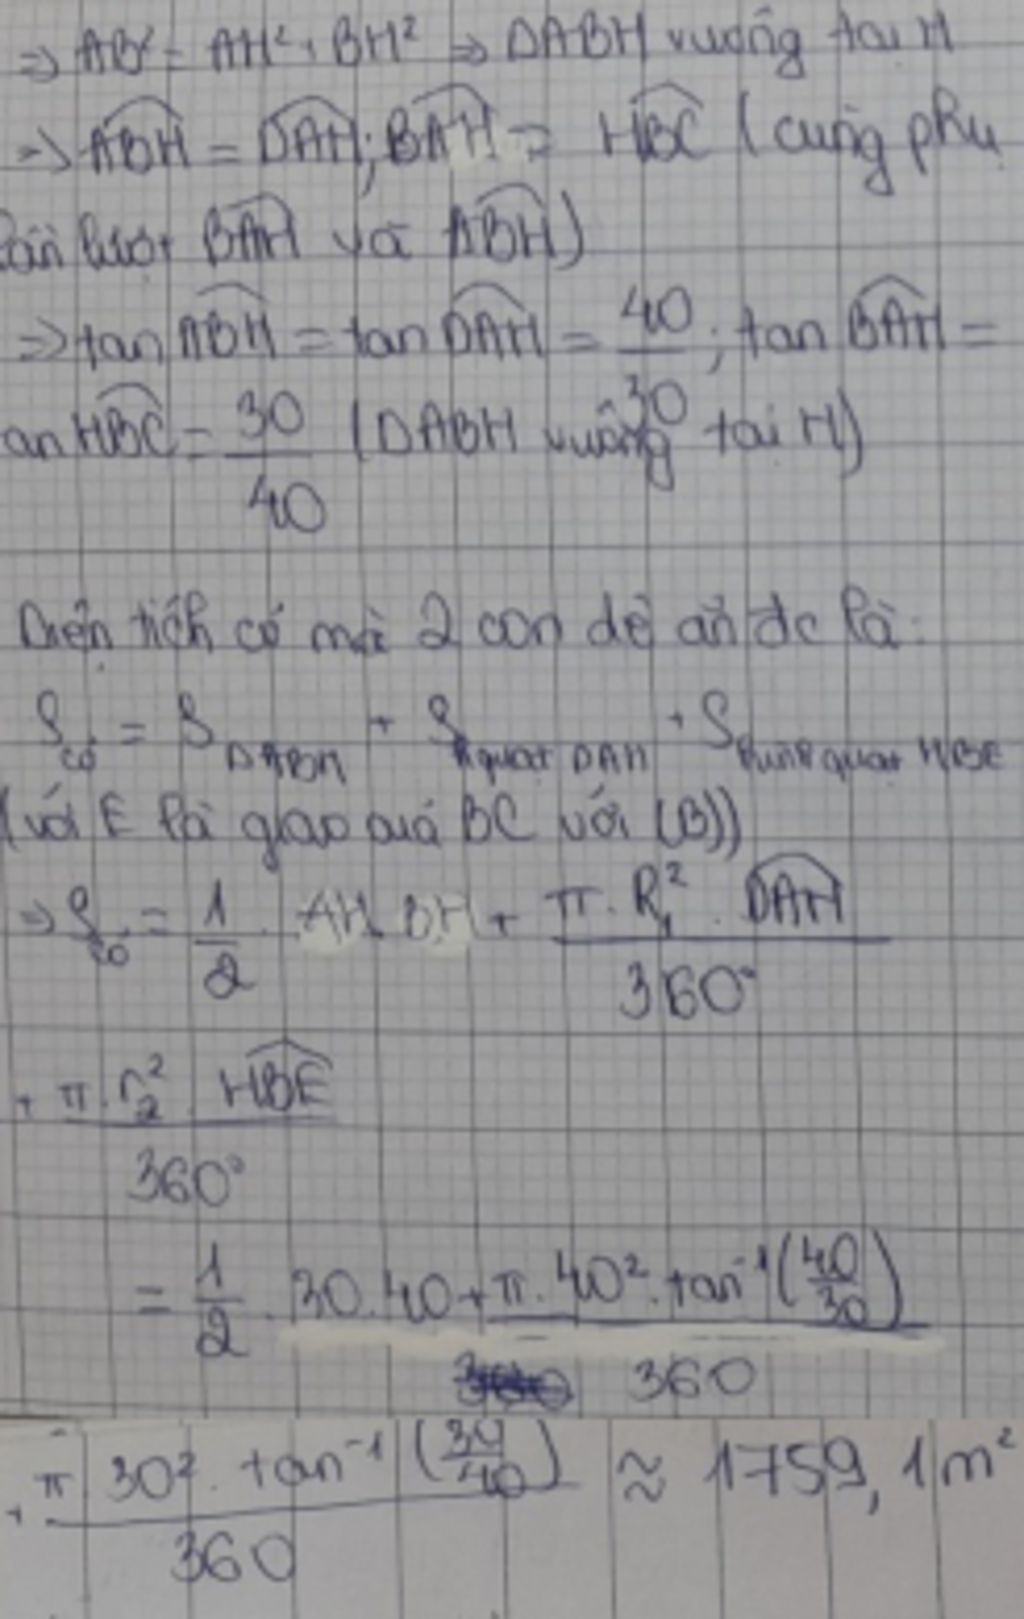 ⇒ AB² = AH² + BH² ⇒ ΔABH vuông tại H
⇒ ABH = DAH; BAH = HBC (cùng phụ
lần lượt BAH và ABH)
⇒ tan ABH = tan DAH = 40/30; tan BAH =
tan HBC = 30/40 (ΔABH vuông tại H)
Diện tích cỏ mà 2 con dê ăn đc là:
S cỏ = S ΔABH + S quạt DAH + S hình quạt HBE
(với E là giao của BC với (B))
⇒ S cỏ = 1/2 . AH . BH + π . R₁² . DAH / 360°
+ π . r₂² . HBE / 360°
= 1/2 . 30 . 40 + π . 40² . tan⁻¹(40/30) / 360
+ π 30² . tan⁻¹(30/40) / 360 ≈ 1759,1 m²